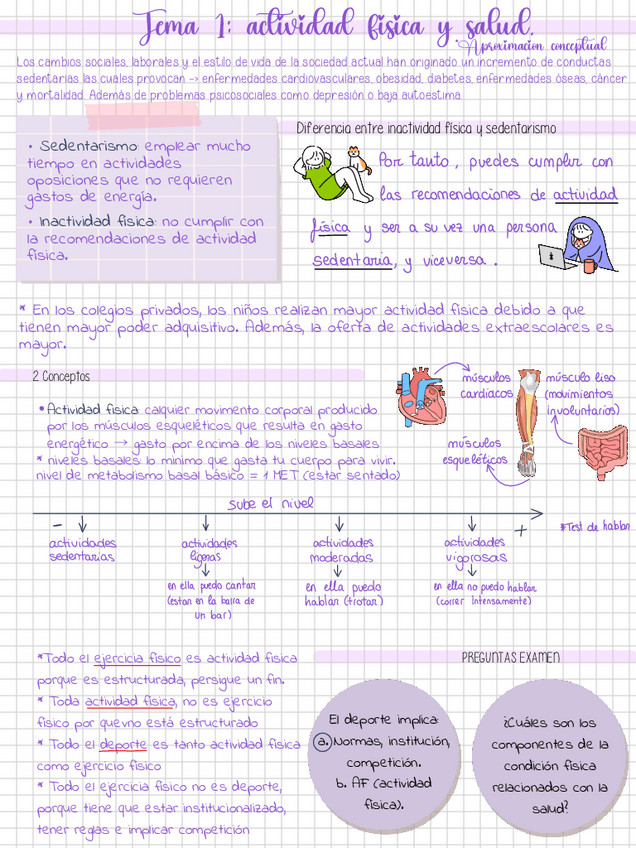 Tema 1: actividad física y salud.
Aproximacion conceptual
Los cambios sociales, laborales y el estilo de vida de la sociedad actual han originado un incremento de conductas
sedentarias las cuales provocan -> enfermedades cardiovasculares, obesidad, diabetes, enfermedades óseas, cáncer
y mortalidad. Además de problemas psicosociales como depresión o baja autoestima.
• Sedentarismo: emplear mucho
tiempo en actividades
oposiciones que no requieren
gastos de energía.
• Inactividad física: no cumplir con
la recomendaciones de actividad
física.
Diferencia entre inactividad física y sedentarismo
Por tanto, puedes cumplir con
las recomendaciones de actividad
física y ser a su vez una persona
sedentaria, y viceversa.
* En los colegios privados, los niños realizan mayor actividad física debido a que
tienen mayor poder adquisitivo. Además, la oferta de actividades extraescolares es
mayor.
2 Conceptos
• Actividad física: calquier movimento corporal producido
por los músculos esqueléticos que resulta en gasto
energético → gasto por encima de los niveles basales
* niveles basales lo minimo que gasta tu cuerpo para vivir.
nivel de metabolismo basal básico = 1 MET (estar sentado)
músculos
cardiacos
músculo liso
(movimientos
involuntarios)
músculos
esqueléticos
sube el nivel
- +
*Test de hablar
actividades
sedentarias
actividades
ligeras
en ella puedo cantar
(estan en la barra de
un bar)
actividades
moderadas
en ella puedo
hablar (trotar)
actividades
vigorosas
en ella no puedo hablar
(correr intensamente)
*Todo el ejercicio físico es actividad física
porque es estructurada, persigue un fin.
* Toda actividad física, no es ejercicio
físico por quevno está estructurado
* Todo el deporte es tanto actividad física
como ejercicio físico
* Todo el ejercicio físico no es deporte,
porque tiene que estar institucionalizado,
tener reglas e implicar competición
PREGUNTAS EXAMEN
El deporte implica:
a. Normas, institución,
competición.
b. AF (actividad
física).
¿Cuáles son los
componentes de la
condición física
relacionados con la
salud?